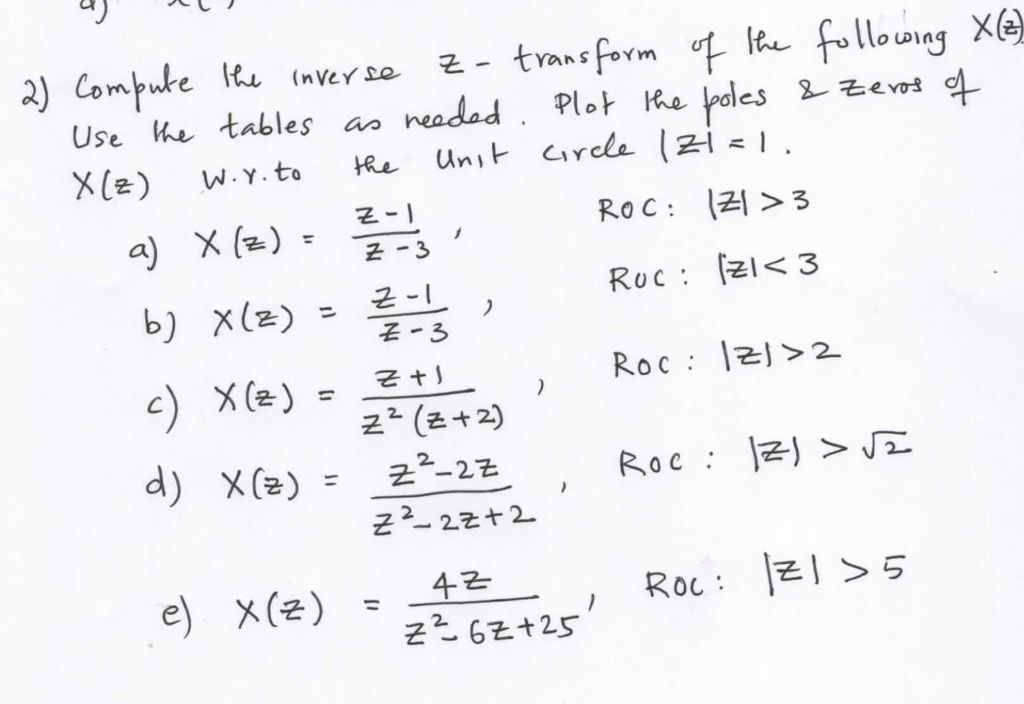 2) Compute the inverse z - transform of the following X(z)
Use the tables as needed. Plot the poles & zeros of
X(z) w.r.to the unit circle |z| = 1.
a) X(z) = (z-1)/(z-3), ROC: |z| > 3
b) X(z) = (z-1)/(z-3), ROC: |z| < 3
c) X(z) = (z+1)/(z²(z+2)), ROC: |z| > 2
d) X(z) = (z²-2z)/(z²-2z+2), ROC: |z| > √2
e) X(z) = 4z/(z²-6z+25), ROC: |z| > 5